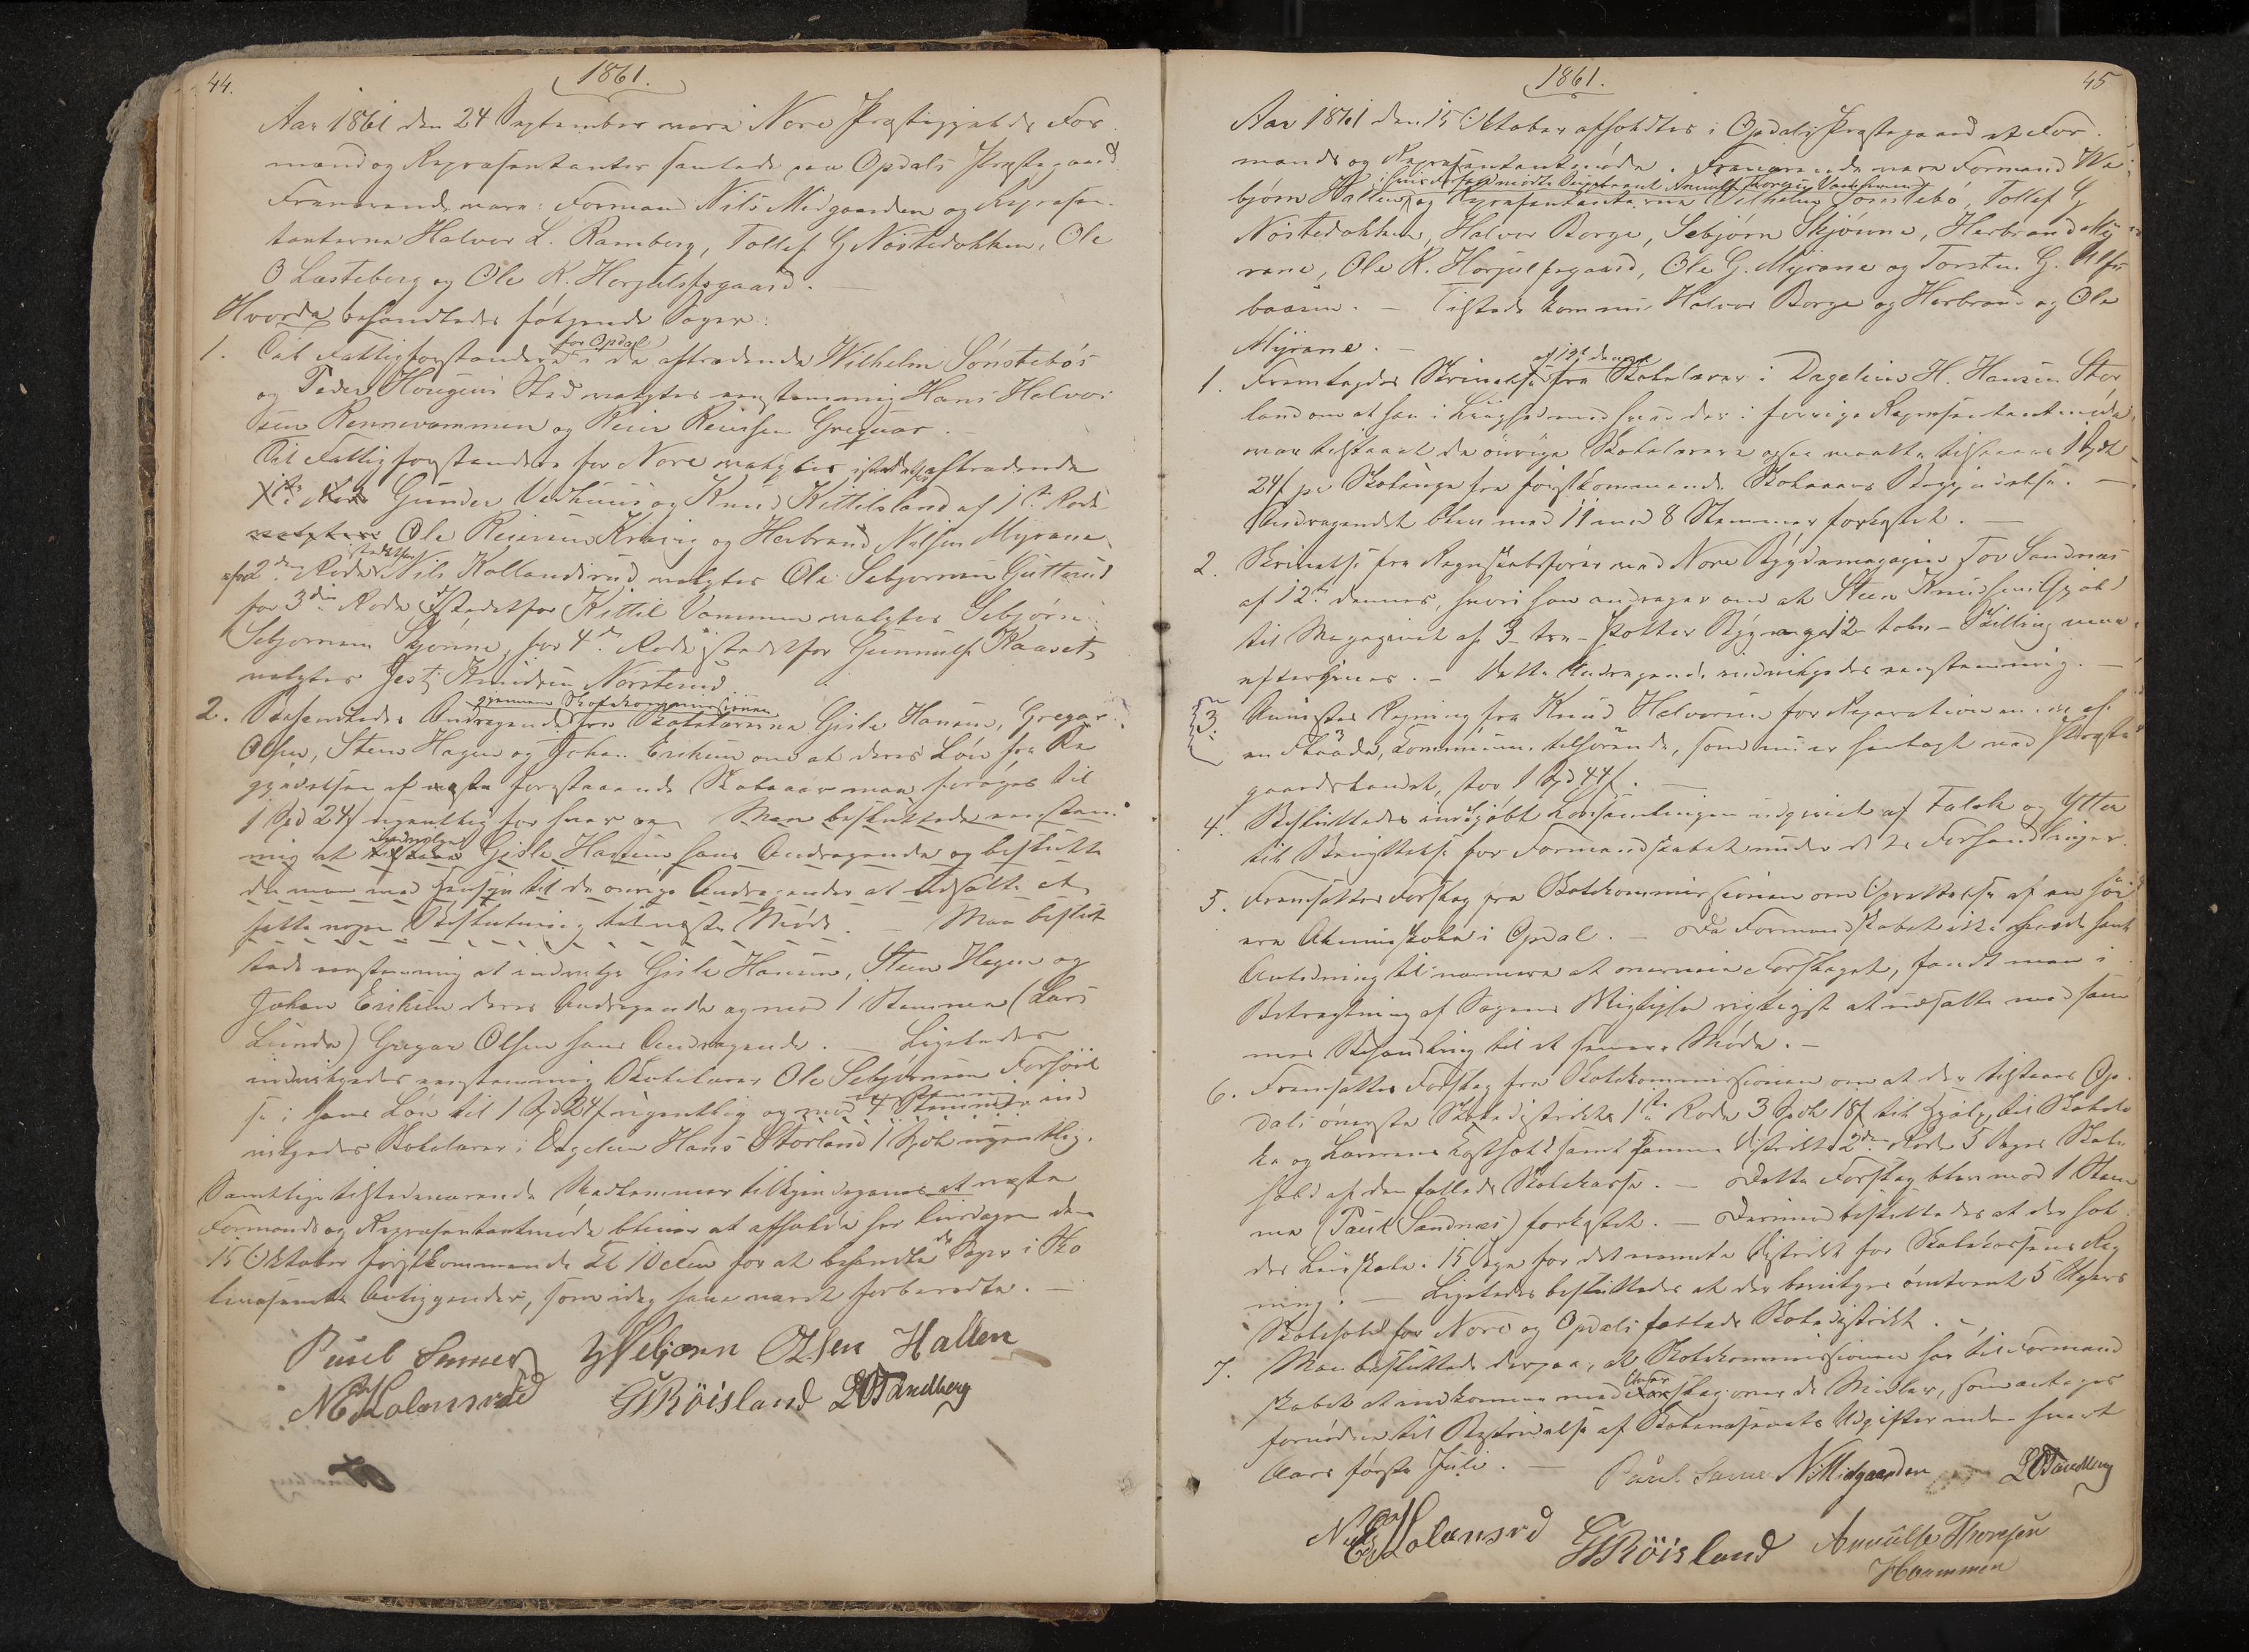 44.
1861.
Aar 1861 den 24 September vare Nore Præstegjelds For-
mænd og Repræsentanter samlede paa Opdals Præstegaard
Fraværende vare: Formand Nils Midgaarden og Repræsen-
tanterne Halvor L. Ramberg, Tollef G Nöstedokken, Ole
O Læsteberg og Ole K. Horjulfsgaard. —
Hvorda behandledes følgende Sager:
for Opdal
1. Til Fattigforstandere i de aftrædende Wilhelm Sönstebös
og Peder Hougens Sted valgtes eenstemmig Hans Halvor
sen Rennevammen og Reier Reiersen Greguar. —
Til Fattigforstandere for Nore valgtes istedetfor aftrædende
Gunder Vedhuus og Knud Kittilsland af 1ste Rode
valgtes Ole Reiersen Kravig og Herbrand Nilsen Myrane,
istedetfor
for 2den Rode Nils Kollandsrud valgtes Ole Sebjornsen Gutterud
for 3die Rode istedetfor Kittil Vammen valgtes Sebjörn
Sebjornsen Skjønne, for 4de Rode istedetfor Gunnulf Kaaset,
valgtes Gest Knudsen Norsterud
gjennem Skolekommissionen
2. Andragende fra Skolelærerne Gisle Hansen, Gregar
Olsen, Steen Hagen og Johan Eriksen om at deres Løn fra Be
gyndelsen af næste forestaaende Skoleaar maa forøges til
1 Spd 24 s ugentlig for hver — Man besluttede eenstem
indvilge
mig at tilstaae Gisle Hansen hans Andragende og beslutte
de man med Hensyn til de øvrige Andragender at udsætte at
fatte nogen Beslutning til næste Møde. — Man beslut
tede eenstemmig at indvilge Gisle Hansen, Steen Hagen og
Johan Eriksen deres Andragende og mod 1 Stemme (Lars
Lunde) Gregar Olsen hans Andragende. — Ligeledes
indvilgedes eenstemmig Skolelærer Ole Sebjörnsen Forhöiel
se i hans Løn til 1 Spd 24 s ugentlig og mod 4 Stemmer ind
vilgedes Skolelærer i Dagelien Hans Storland 1 Spd ugentlig.
Samtlige tilstedeværende Medlemmer tilkjendegaves at næste
Formands og Repræsentantmøde bliver at afholde her Tirsdagen den
15 Oktober førstkommende Kl 10 Form for at behandle de Sager i Sko
levæsenets Anliggender, som idag have været forberedte. —
Paul Sønnes Vebjørn Olsen Hallen
N E Holmsrud GRöisland L O Sandberg
1861.
45
Aar 1861 den 15 Oktober afholdtes i Opdals Præstegaard et For-
mands og Repræsentantmöde. Fraværende vare Formand We-
i hvis Forfald mødte Suppleant Anuulf Thoresen Vaammen
bjørn Hallen, og Repræsentanterne Vilhelm Sönstebö, Tollef G
Nöstedokken, Halvor Borge, Sebjörn Skjönne, Herbrand My
rane, Ole K. Horjulfsgaard, Ole G. Myrane og Torsten G. Ulfs
baasen. — Tilstede kom nu Halvor Borge og Herbrand og Ole
Myrane. —
af 12te dennes
1. Fremlagdes Skrivelse fra Skolelærer i Dagelien H. Hansen Stor
land om at han i Liighed med hvad der i forrige Repræsentantmøde
var tilstaaet de øvrige Skolelærere ogsaa maatte tilstaaes 1 Spd
24 s pr Skoleuge fra førstkommende Skoleaars Begyndelse. —
Andragendet blev med 11 mod 8 Stemmer forkastet. —
2. Skrivelse fra Regnskabsfører ved Nore Bygdemagazin Tov Sandnæs
af 12te dennes, hvori han andrager om at Steen Knudsens Gjæld
til Magazinet af 3 tre Potter Byg og 12 tolv Skilling maa
eftergives. — Dette Andragende indvilgedes eenstemmig. —
3. Anvistes Regning fra Knud Halvorsen for Reparationen af
en Kommunen tilhørende, som nu er henlagt ved Præste
gaardslandet, stor 1 Spd 44 s. —
4. Besluttedes indkjøbt Lovsamlingen udgivet af Falck og Ytter
til Benyttelse for Formandskabet under dets Forhandlinger.
5. Fremsattes Forslag fra Skolekommissionen om Oprettelse af en höi
ere Almueskole i Opdal. — Da Formandskabet ikke havde havt
Anledning til nærmere at overveie Forslaget, fandt man i
Betragtning af Sagens Vigtighed rigtigst at udsætte med sam
mes Behandling til et senere Møde. —
6. Fremsattes Forslag fra Skolekommissionen om at der tilstaaes Op-
dals överste Skoledistrikts 1ste Rode 3 Spd 18 s til Hjælp til Skolelo
kale og Lærerens Kosthold samt samme Distrikts 2den Rode 5 Ugers Skole
hold af den fælleds Skolekasse. — Dette Forslag blev mod 1 Stem
me (Paul Sandnæs) forkastet. — Derimod besluttedes at der hol
des Leieskole i 15 Uger for det nævnte Distrikt for Skolekassens Reg
ning. — Ligeledes besluttedes at der bevilges omtrent 5 Ugers
Skolehold for Nore og Opdals fælleds Skoledistrikt. —
7. Man besluttede derpaa, at Skolekommissionen har til Formand
skabet at indkomme med Forslag over de Midler, som antages
fornødne til Bestridelse af Skolevæsenets Udgifter inden hvert
Aars første Juli. —
Paul Sønnes NMidgaarden L O Sandberg
N E Holmsrud GRöisland Anuulf Thoresen
Hvaammen